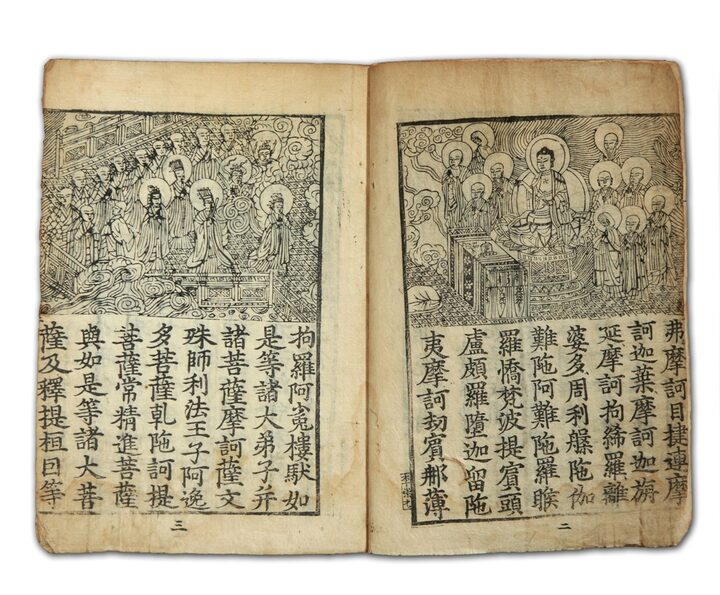 弗摩訶目揵連摩
訶迦葉摩訶迦旃
延摩訶拘絺羅離
婆多周利槃陁伽
難陁阿難陁羅睺
羅憍梵波提賓頭
盧頗羅墮迦留陁
夷摩訶劫賓那薄
二
拘羅阿㝹樓馱如
是等諸大弟子并
諸菩薩摩訶薩文
殊師利法王子阿逸
多菩薩乹陁訶提
菩薩常精進菩薩
與如是等諸大菩
薩及釋提桓因等
三